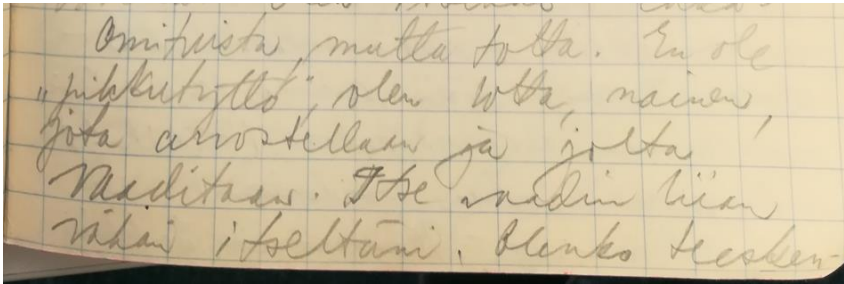 Omituista, mutta totta. En ole
"pikkutyttö", olen lotta, nainen,
jota arvostellaan ja jolta
vaaditaan. Itse vaadin liian
vähän itseltäni. Olenko teesken-